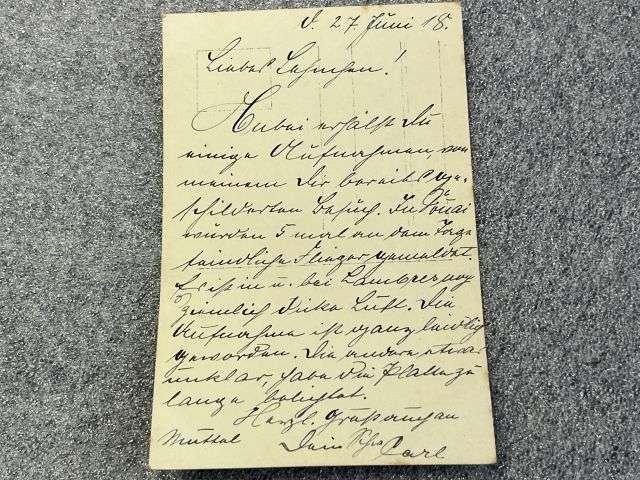 d. 27. Juni 18.
Liebes Lehmchen!
Anbei erhältst Du
einige Aufnahmen, von
meinem Dir bereits ge-
schilderten Besuch. In Douai
wurden 5 mal an dem Tage
feindliche Flieger gemeldet.
Es ist in u. bei
ziemlich dicke Luft. Die
Aufnahme ist ganz leidlich
geworden. Die andere etwas
unklar, habe die Platte zu
lange belichtet.
Herzl. Grüße an
Muttel Dein Carl